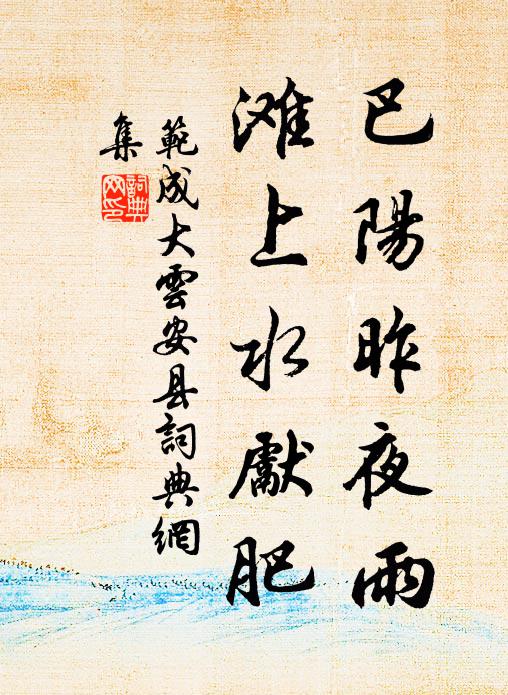 巳陽昨夜雨
滩上水獻肥
範成大雲安县詞典網
集
詞典網印